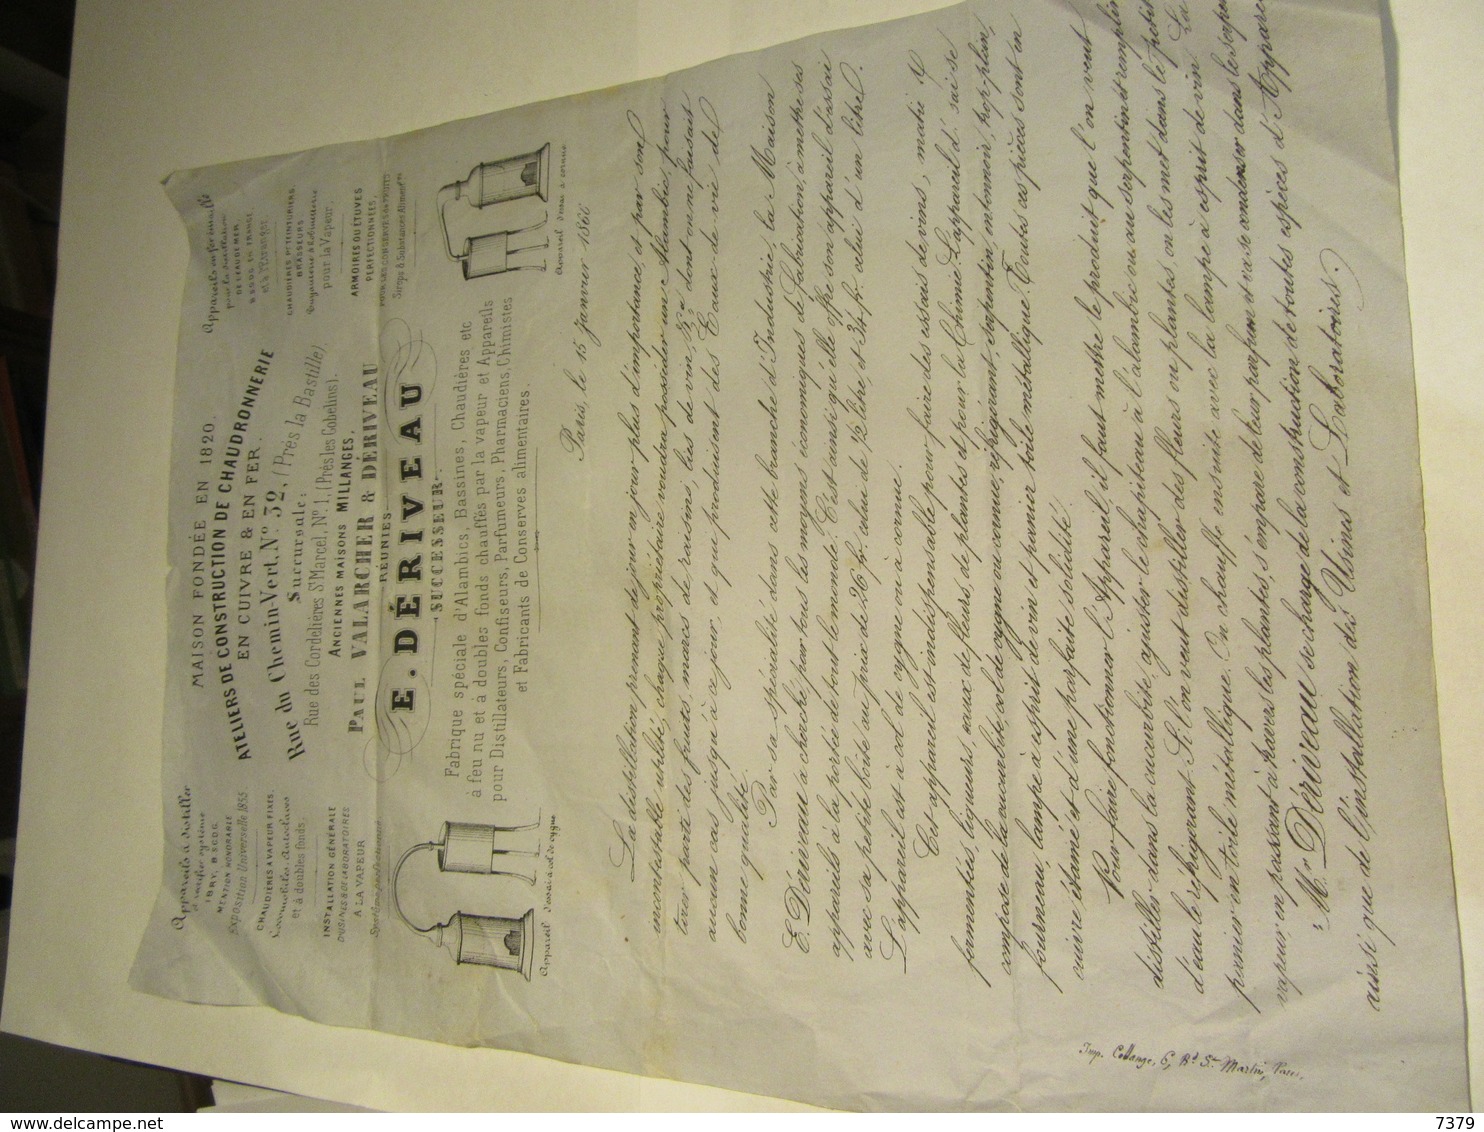 MAISON FONDÉE EN 1820.
ATELIERS DE CONSTRUCTION DE CHAUDRONNERIE
EN CUIVRE & EN FER.
Rue du Chemin-Vert, N.º 32, (Près la Bastille)
Succursale:
Rue des Cordelières St Marcel, Nº 1, (Près les Gobelins).
ANCIENNES MAISONS MILLANGES,
PAUL VALARCHER & DÉRIVEAU
RÉUNIES
E. DÉRIVEAU
SUCCESSEUR
Fabrique spéciale d'Alambics, Bassines, Chaudières etc
à feu nu et à doubles fonds chauffés par la vapeur et Appareils
pour Distillateurs, Confiseurs, Parfumeurs, Pharmaciens, Chimistes
et Fabricants de Conserves alimentaires.
Appareils à distiller
système
1 BRV. B.S.G.D.G.
MENTION HONORABLE
EXPOSITION Universelle 1855
CHAUDIÈRES A VAPEUR FIXES,
et à doubles fonds,
INSTALLATION GÉNÉRALE
D'USINES & DE LABORATOIRES
A LA VAPEUR
Appareil d'essai à col de cygne
Appareils
pour la distillation
CHAUDIÈRES Pr TEINTURIERS
BRASSEURS
pour la Vapeur,
ARMOIRES OU ÉTUVES
PERFECTIONNÉES,
POUR LES CONSERVES DE FRUITS
Sirops & Substances Alimres
Appareil d'essai à cornue
Paris, le 15 Janvier 1866
La distillation prenant de jour en jour plus d'importance, et par son
incontestable utilité, chaque propriétaire voudra posséder un Alambic, pour
tirer parti des fruits, marcs de raisins, lies de vin, &.a dont on ne faisait
aucun cas jusqu'à ce jour, et qui produisent des Eaux-de-vie de
bonne qualité.
Par sa spécialité dans cette branche d'Industrie, la Maison
E. Dériveau a cherché par tous les moyens économiques de fabrication, à mettre ses
appareils à la portée de tout le monde. C'est ainsi qu'elle offre son appareil d'essai
avec sa petite boîte au prix de 26 fr. celui de ½ litre, et 34 fr. celui d'un litre.
L'appareil est à col de cygne ou à cornue.
Cet appareil est indispensable pour faire des essais de vins,
fermentées, liqueurs, eaux de fleurs, de plantes et pour la Chimie. L'appareil d'essai se
compose de la cucurbite, col de cygne ou cornue, réfrigérant, serpentin, entonnoir, trop-plein,
fourneau, lampe à esprit de vin et panier toile métallique. Toutes ces pièces sont en
cuivre étamé et d'une parfaite solidité.
Pour faire fonctionner l'Appareil, il faut mettre le produit que l'on veut
distiller dans la cucurbite, ajuster le chapiteau à l'alambic ou au serpentin et remplir
d'eau le réfrigérant. Si l'on veut distiller des fleurs ou plantes on les met dans le petit
panier en toile métallique. On chauffe ensuite avec la lampe à esprit de vin La
vapeur, en passant à travers les plantes, s'empare de leur parfum et va se condenser dans le serpen
Mr Dériveau se charge de la construction de toutes espèces d'Appare
ainsi que de l'installation des Usines et Laboratoires.
Imp. Collange, 6, Bd St Martin, Paris.
7379